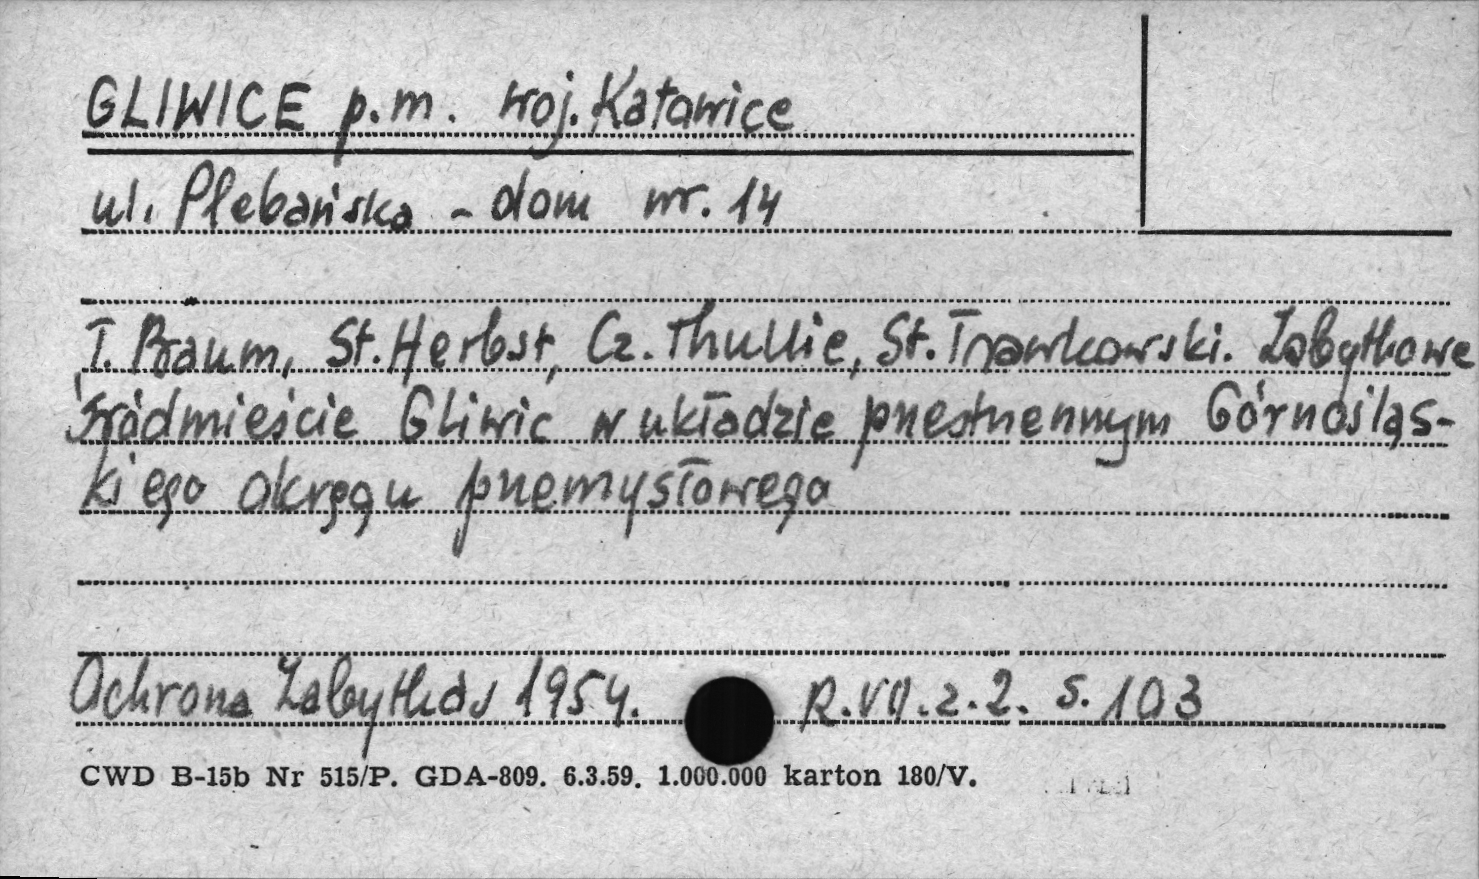 GLIWICE p.m. woj. Katowice
ul. Plebańska - dom nr. 14
T. Braum, St. Herbst, Cz. Thullie, St. Trawkowski. Zabytkowe
śródmieście Gliwic w układzie przestrzennym Górnośląs-
kiego okręgu przemysłowego
Ochrona Zabytków 1954. R.VII.z.2. s. 103
CWD B-15b Nr 515/P. GDA-809. 6.3.59. 1.000.000 karton 180/V.